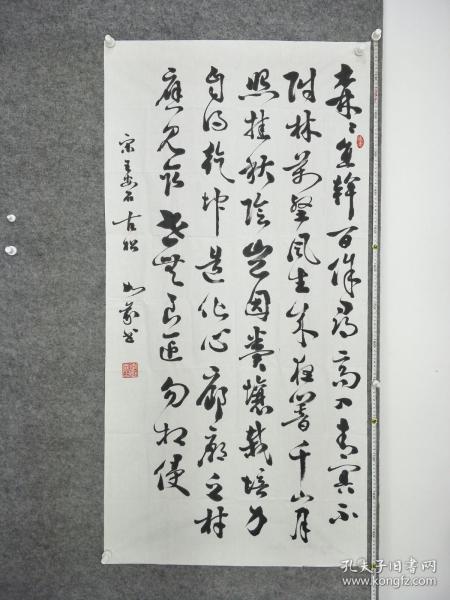 森〻直幹百餘尋高入青冥不
附林萬壑風生成夜響千山月
照挂秋陰豈因糞壤栽培力
自得乾坤造化心廊廟乏材
應見取世無良匠勿相侵
宋王安石古松
孔夫子旧书网
www.kongfz.com